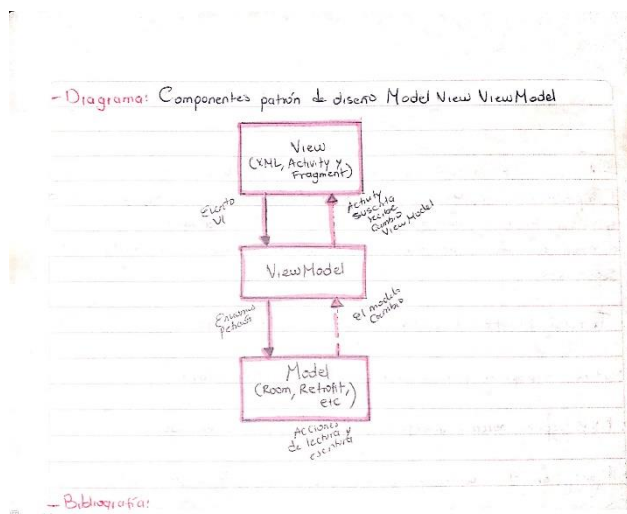 - Diagrama: Componentes patrón de diseño Model View ViewModel
View
(XML, Activity y
Fragment)
Evento
UI
Activity
suscrita
recibe
cambio
ViewModel
ViewModel
Enviamos
petición
el modelo
cambio
Model
(Room, Retrofit,
etc)
Acciones
de lectura y
escritura
- Bibliografía: